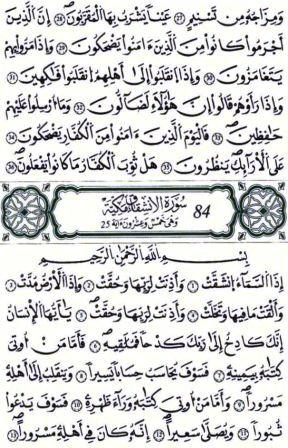 وَمِزَاجُهُ مِن تَسْنِيمٍ ٢٧ عَيْنًا يَشْرَبُ بِهَا ٱلْمُقَرَّبُونَ ٢٨ إِنَّ ٱلَّذِينَ
أَجْرَمُوا۟ كَانُوا۟ مِنَ ٱلَّذِينَ ءَامَنُوا۟ يَضْحَكُونَ ٢٩ وَإِذَا مَرُّوا۟ بِهِمْ
يَتَغَامَزُونَ ٣٠ وَإِذَا ٱنقَلَبُوٓا۟ إِلَىٰٓ أَهْلِهِمُ ٱنقَلَبُوا۟ فَٰكِهِينَ ٣١
وَإِذَا رَأَوْهُمْ قَالُوٓا۟ إِنَّ هَٰٓؤُلَآءِ لَضَآلُّونَ ٣٢ وَمَآ أُرْسِلُوا۟ عَلَيْهِمْ
حَٰفِظِينَ ٣٣ فَٱلْيَوْمَ ٱلَّذِينَ ءَامَنُوا۟ مِنَ ٱلْكُفَّارِ يَضْحَكُونَ ٣٤
عَلَى ٱلْأَرَآئِكِ يَنظُرُونَ ٣٥ هَلْ ثُوِّبَ ٱلْكُفَّارُ مَا كَانُوا۟ يَفْعَلُونَ ٣٦
84 سُورَةُ الِانشِقَاقِ مَكِّيَّة
وَهِيَ خَمْسٌ وَعِشْرُونَ ءَايَة 25
بِسْمِ ٱللَّهِ ٱلرَّحْمَٰنِ ٱلرَّحِيمِ
إِذَا ٱلسَّمَآءُ ٱنشَقَّتْ ١ وَأَذِنَتْ لِرَبِّهَا وَحُقَّتْ ٢ وَإِذَا ٱلْأَرْضُ مُدَّتْ ٣
وَأَلْقَتْ مَا فِيهَا وَتَخَلَّتْ ٤ وَأَذِنَتْ لِرَبِّهَا وَحُقَّتْ ٥ يَٰٓأَيُّهَا ٱلْإِنسَٰنُ
إِنَّكَ كَادِحٌ إِلَىٰ رَبِّكَ كَدْحًا فَمُلَٰقِيهِ ٦ فَأَمَّا مَنْ أُوتِىَ
كِتَٰبَهُۥ بِيَمِينِهِۦ ٧ فَسَوْفَ يُحَاسَبُ حِسَابًا يَسِيرًا ٨ وَيَنقَلِبُ إِلَىٰٓ أَهْلِهِۦ
مَسْرُورًا ٩ وَأَمَّا مَنْ أُوتِىَ كِتَٰبَهُۥ وَرَآءَ ظَهْرِهِۦ ١٠ فَسَوْفَ يَدْعُوا۟
ثُبُورًا ١١ وَيَصْلَىٰ سَعِيرًا ١٢ إِنَّهُۥ كَانَ فِىٓ أَهْلِهِۦ مَسْرُورًا ١٣